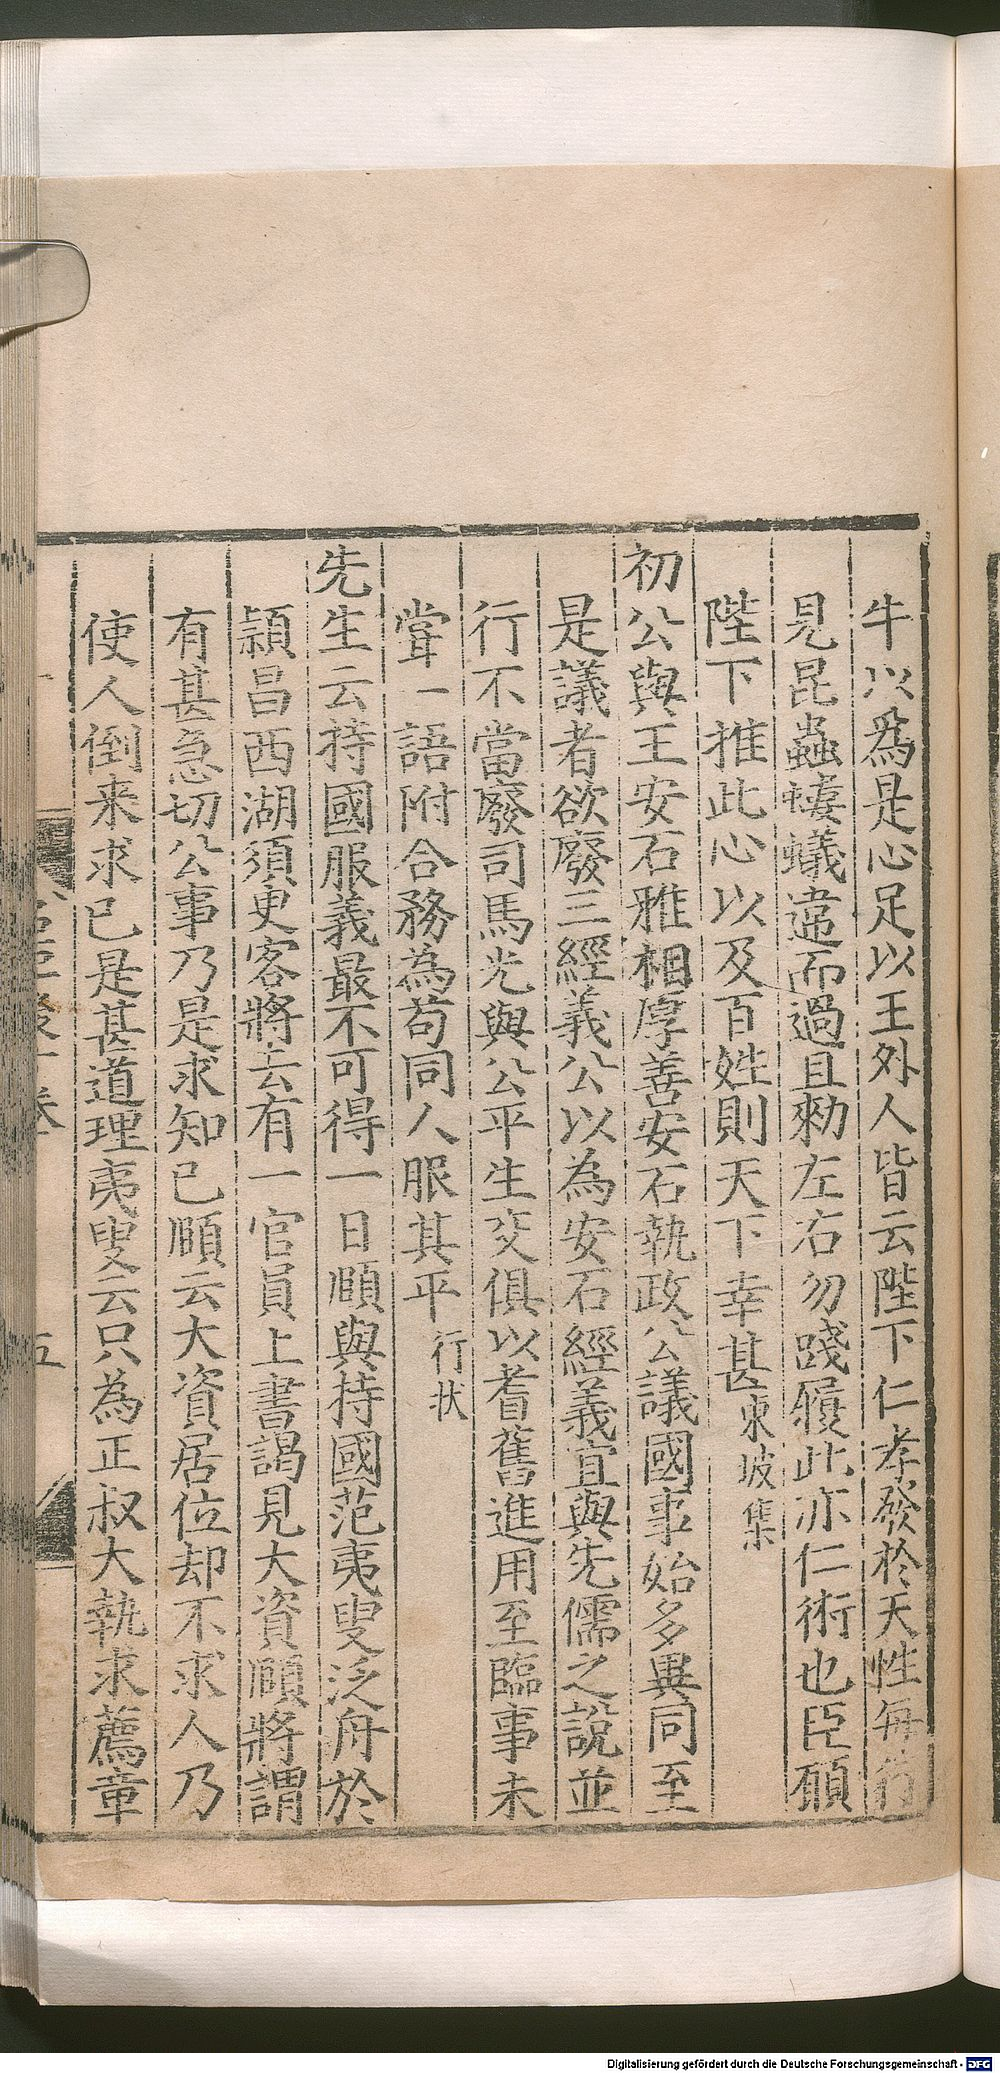 牛以爲是心足以王外人皆云陛下仁孝發於天性每行
見昆蟲螻蟻違而過且勑左右勿踐履此亦仁術也臣願
陛下推此心以及百姓則天下幸甚東坡集
初公與王安石雅相厚善安石執政公議國事始多異同至
是議者欲廢三經義公以為安石經義宜與先儒之說並
行不當廢司馬光與公平生交俱以耆舊進用至臨事未
甞一語附合務為苟同人服其平行狀
先生云持國服義最不可得一日頤與持國范夷叟泛舟於
潁昌西湖須臾客將去有一官員上書謁見大資頤將謂
有甚急切公事乃是求知已頤云大資居位却不求人乃
使人倒来求已是甚道理夷叟云只為正叔大執求薦章
五
Digitalisierung gefördert durch die Deutsche Forschungsgemeinschaft - DFG